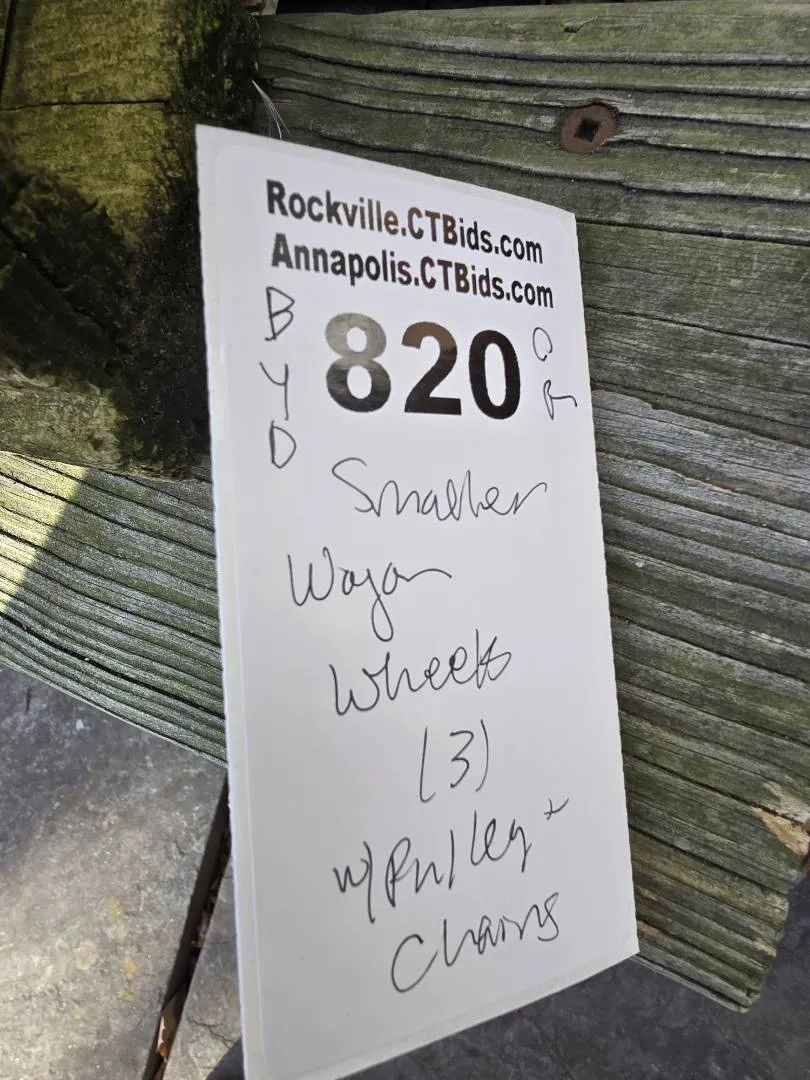 Rockville.CTBids.com
Annapolis.CTBids.com
BYD
820
OR
Smaller
Wagon
Wheels
(3)
w/Pulley +
Chains